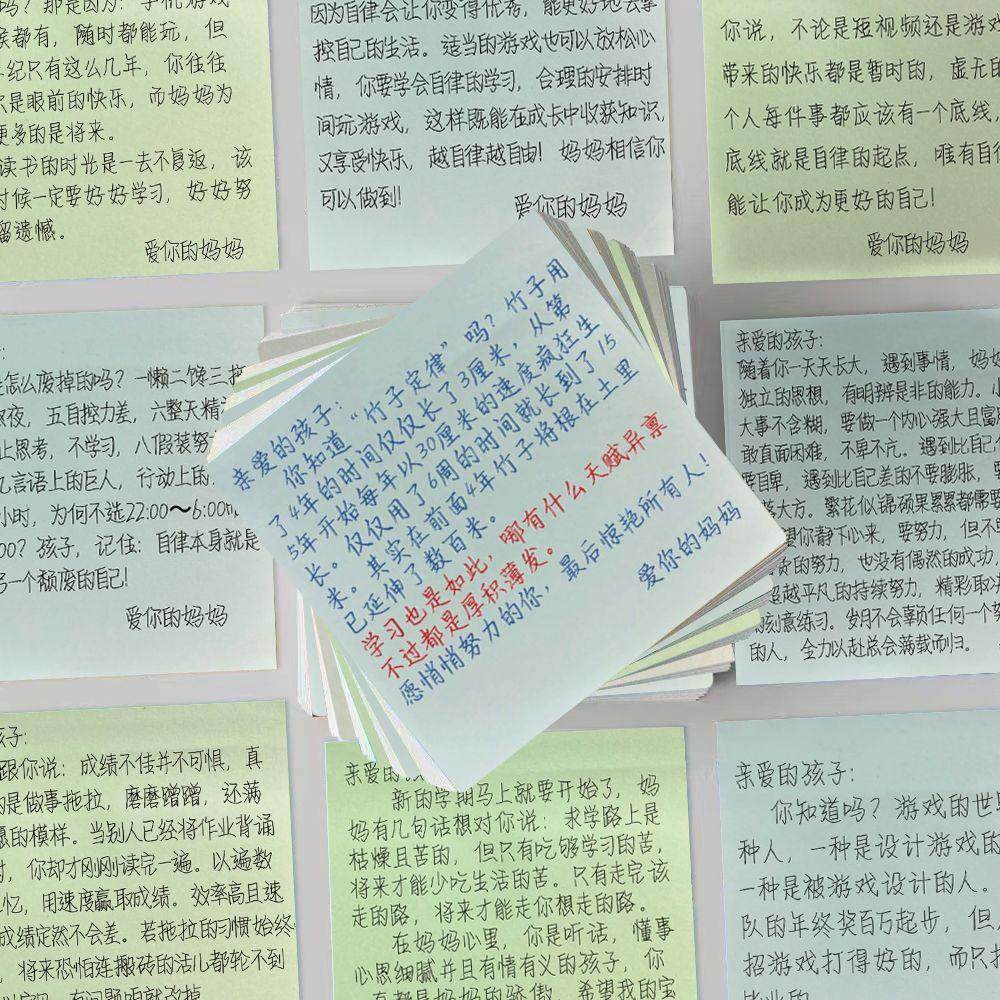 吗？那是因为：手机游戏
候都有，随时都能玩，但
年纪只有这么几年，你往往
只是眼前的快乐，而妈妈为
更多的是将来。
读书的时光是一去不复返，该
时候一定要好好学习，好好努
留遗憾。
爱你的妈妈
因为自律会让你变得优秀，能更好地去掌
控自己的生活。适当的游戏也可以放松心
情，你要学会自律的学习，合理的安排时
间玩游戏，这样既能在成长中收获知识，
又享受快乐，越自律越自由！妈妈相信你
可以做到！
爱你的妈妈
你说，不论是短视频还是游戏
带来的快乐都是暂时的，虚无的
个人每件事都应该有一个底线，
底线就是自律的起点，唯有自律
能让你成为更好的自己！
爱你的妈妈
是怎么废掉的吗？一懒二馋三拖
熬夜，五自控力差，六整天精神
止思考，不学习，八假装努
九言语上的巨人，行动上的
小时，为何不选22:00～6:00
00？孩子，记住：自律本身就是
另一个颓废的自己！
爱你的妈妈
亲爱的孩子：
你知道“竹子定律”吗？竹子用
了4年的时间仅仅长了3厘米，从第
5年开始每年以30厘米的速度疯狂生
长。仅仅用了6周的时间就长到了15
米。其实在前面4年竹子将根在土里
已延伸了数百米。
学习也是如此，哪有什么天赋异禀
不过都是厚积薄发。
愿悄悄努力的你，最后惊艳所有人！
爱你的妈妈
亲爱的孩子：
随着你一天天长大，遇到事情，妈妈
独立的思想，有明辨是非的能力。
大事不含糊，要做一个内心强大且富
敢直面困难，不卑不亢。遇到比自己
要自卑，遇到比自己差的不要膨胀，要
落大方。繁花似锦硕果累累都需要
望你静下心来，要努力，但不
的努力，也没有偶然的成功，
超越平凡的持续努力，精彩取决
的刻意练习。岁月不会辜负任何一个努
的人，全力以赴总会满载而归。
孩子：
跟你说：成绩不佳并不可惧，真
的是做事拖拉，磨磨蹭蹭，还满
愿的模样。当别人已经将作业背诵
时，你却才刚刚读完一遍。以遍数
忆，用速度赢取成绩。效率高且速
成绩定然不会差。若拖拉的习惯始终
，将来恐怕连搬砖的活儿都轮不到
有问题咱就改掉
亲爱的孩
新的学期马上就要开始了，妈
妈有几句话想对你说：求学路上是
枯燥且苦的，但只有吃够学习的苦，
将来才能少吃生活的苦。只有走完该
走的路，将来才能走你想走的路。
在妈妈心里，你是听话，懂事
心思细腻并且有情有义的孩子，你
有都是妈妈的骄傲，希望我的宝
亲爱的孩子：
你知道吗？游戏的世界
种人，一种是设计游戏的
一种是被游戏设计的人。
队的年终奖百万起步，但
招游戏打得好的，而只招
毕业的